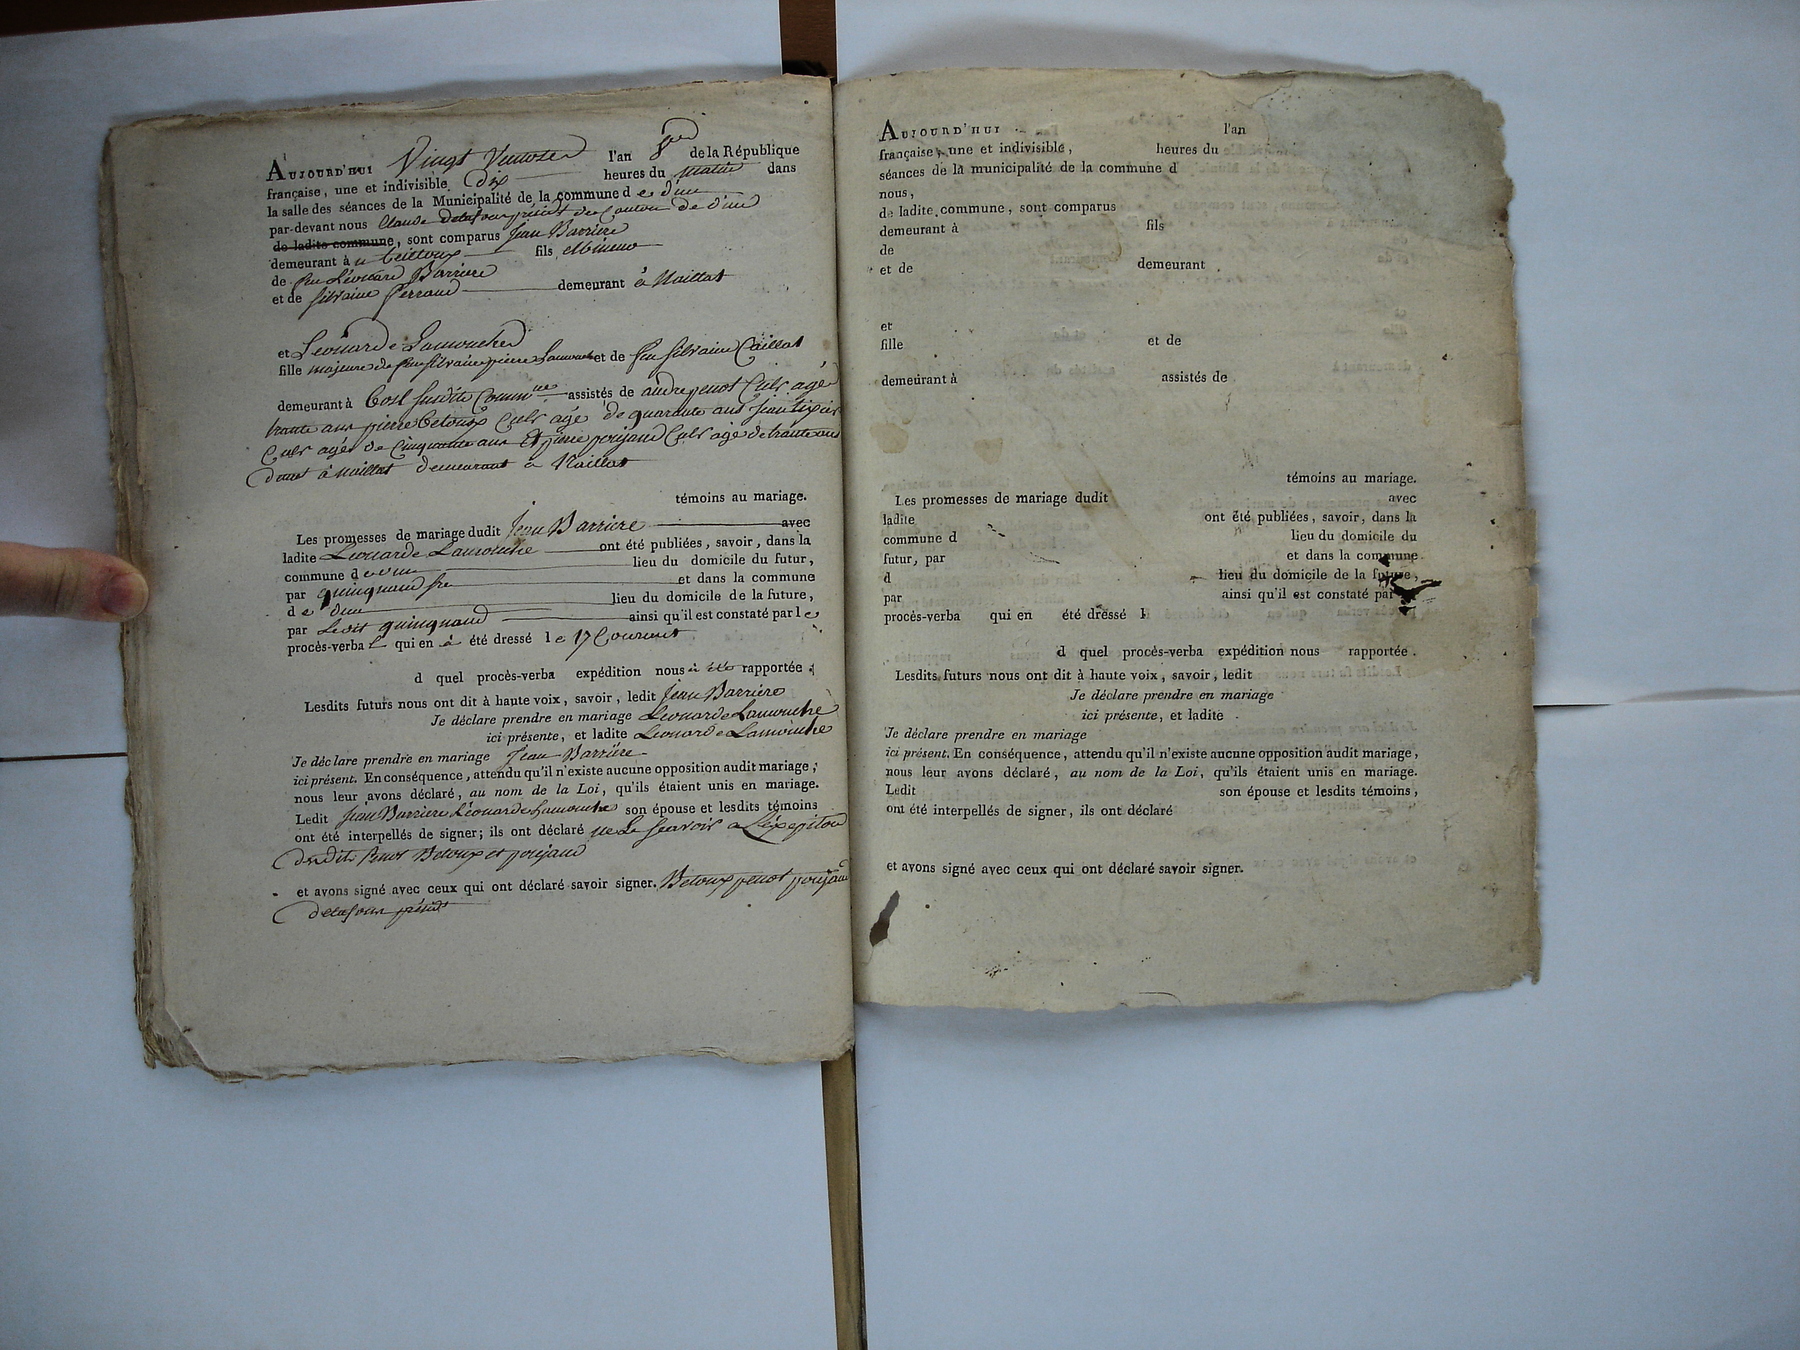 AUJOURD'HUI Vingt Ventose l'an 8me de la République
française, une et indivisible, dix heures du matin dans
la salle des séances de la Municipalité de la commune de dun
par-devant nous Claude delafour présidt du Canton de dun
de ladite commune, sont comparus Jean Barriere
demeurant à fils Mineur
de feu Léonard Barriere
et de Silvaine Perraud demeurant à Naillat
et Leonarde Lamouche
fille majeure de feu Silvain pierre Lamouche et de feu Silvaine Caillat
demeurant à susdite Commne assistés de andre penot Cultr agé
trante ans pierre Betoux Cultr agé de quarante ans Jean tixier
Cultr agé de Cinquante ans Et pierre poujaud Cultr agé de trante ans
à Naillat demeurant à Naillat
témoins au mariage.
Les promesses de mariage dudit Jean Barriere avec
ladite Leonarde Lamouche ont été publiées, savoir, dans la
commune de dun lieu du domicile du futur,
par quinquaud et dans la commune
de dun lieu du domicile de la future,
par Ledit quinquaud ainsi qu'il est constaté par le
procès-verbal qui en à été dressé le 17 Courant
d quel procès-verba expédition nous à été rapportée.
Lesdits futurs nous ont dit à haute voix, savoir, ledit Jean Barriere
Je déclare prendre en mariage Leonarde Lamouche
ici présente, et ladite Leonarde Lamouche
Je déclare prendre en mariage Jean Barriere
ici présent. En conséquence, attendu qu'il n'existe aucune opposition audit mariage,
nous leur avons déclaré, au nom de la Loi, qu'ils étaient unis en mariage.
Ledit Jean Barriere Léonarde Lamouche son épouse et lesdits témoins
ont été interpellés de signer; ils ont déclaré ne Le scavoir a Lexepition
desdits Penot Betoux et poujaud
et avons signé avec ceux qui ont déclaré savoir signer. Betoux penot poujaud
delafour présidt
AUJOURD'HUI l'an
française, une et indivisible, heures du
séances de la municipalité de la commune d
nous,
de ladite commune, sont comparus
demeurant à fils
de
et de demeurant
et
fille et de
demeurant à assistés de
témoins au mariage.
Les promesses de mariage dudit avec
ladite ont été publiées, savoir, dans la
commune d lieu du domicile du
futur, par et dans la commune
d lieu du domicile de la future,
par ainsi qu'il est constaté par
procès-verba qui en été dressé l
d quel procès-verba expédition nous rapportée.
Lesdits futurs nous ont dit à haute voix, savoir, ledit
Je déclare prendre en mariage
ici présente, et ladite
Je déclare prendre en mariage
ici présent. En conséquence, attendu qu'il n'existe aucune opposition audit mariage,
nous leur avons déclaré, au nom de la Loi, qu'ils étaient unis en mariage.
Ledit son épouse et lesdits témoins,
ont été interpellés de signer, ils ont déclaré
et avons signé avec ceux qui ont déclaré savoir signer.